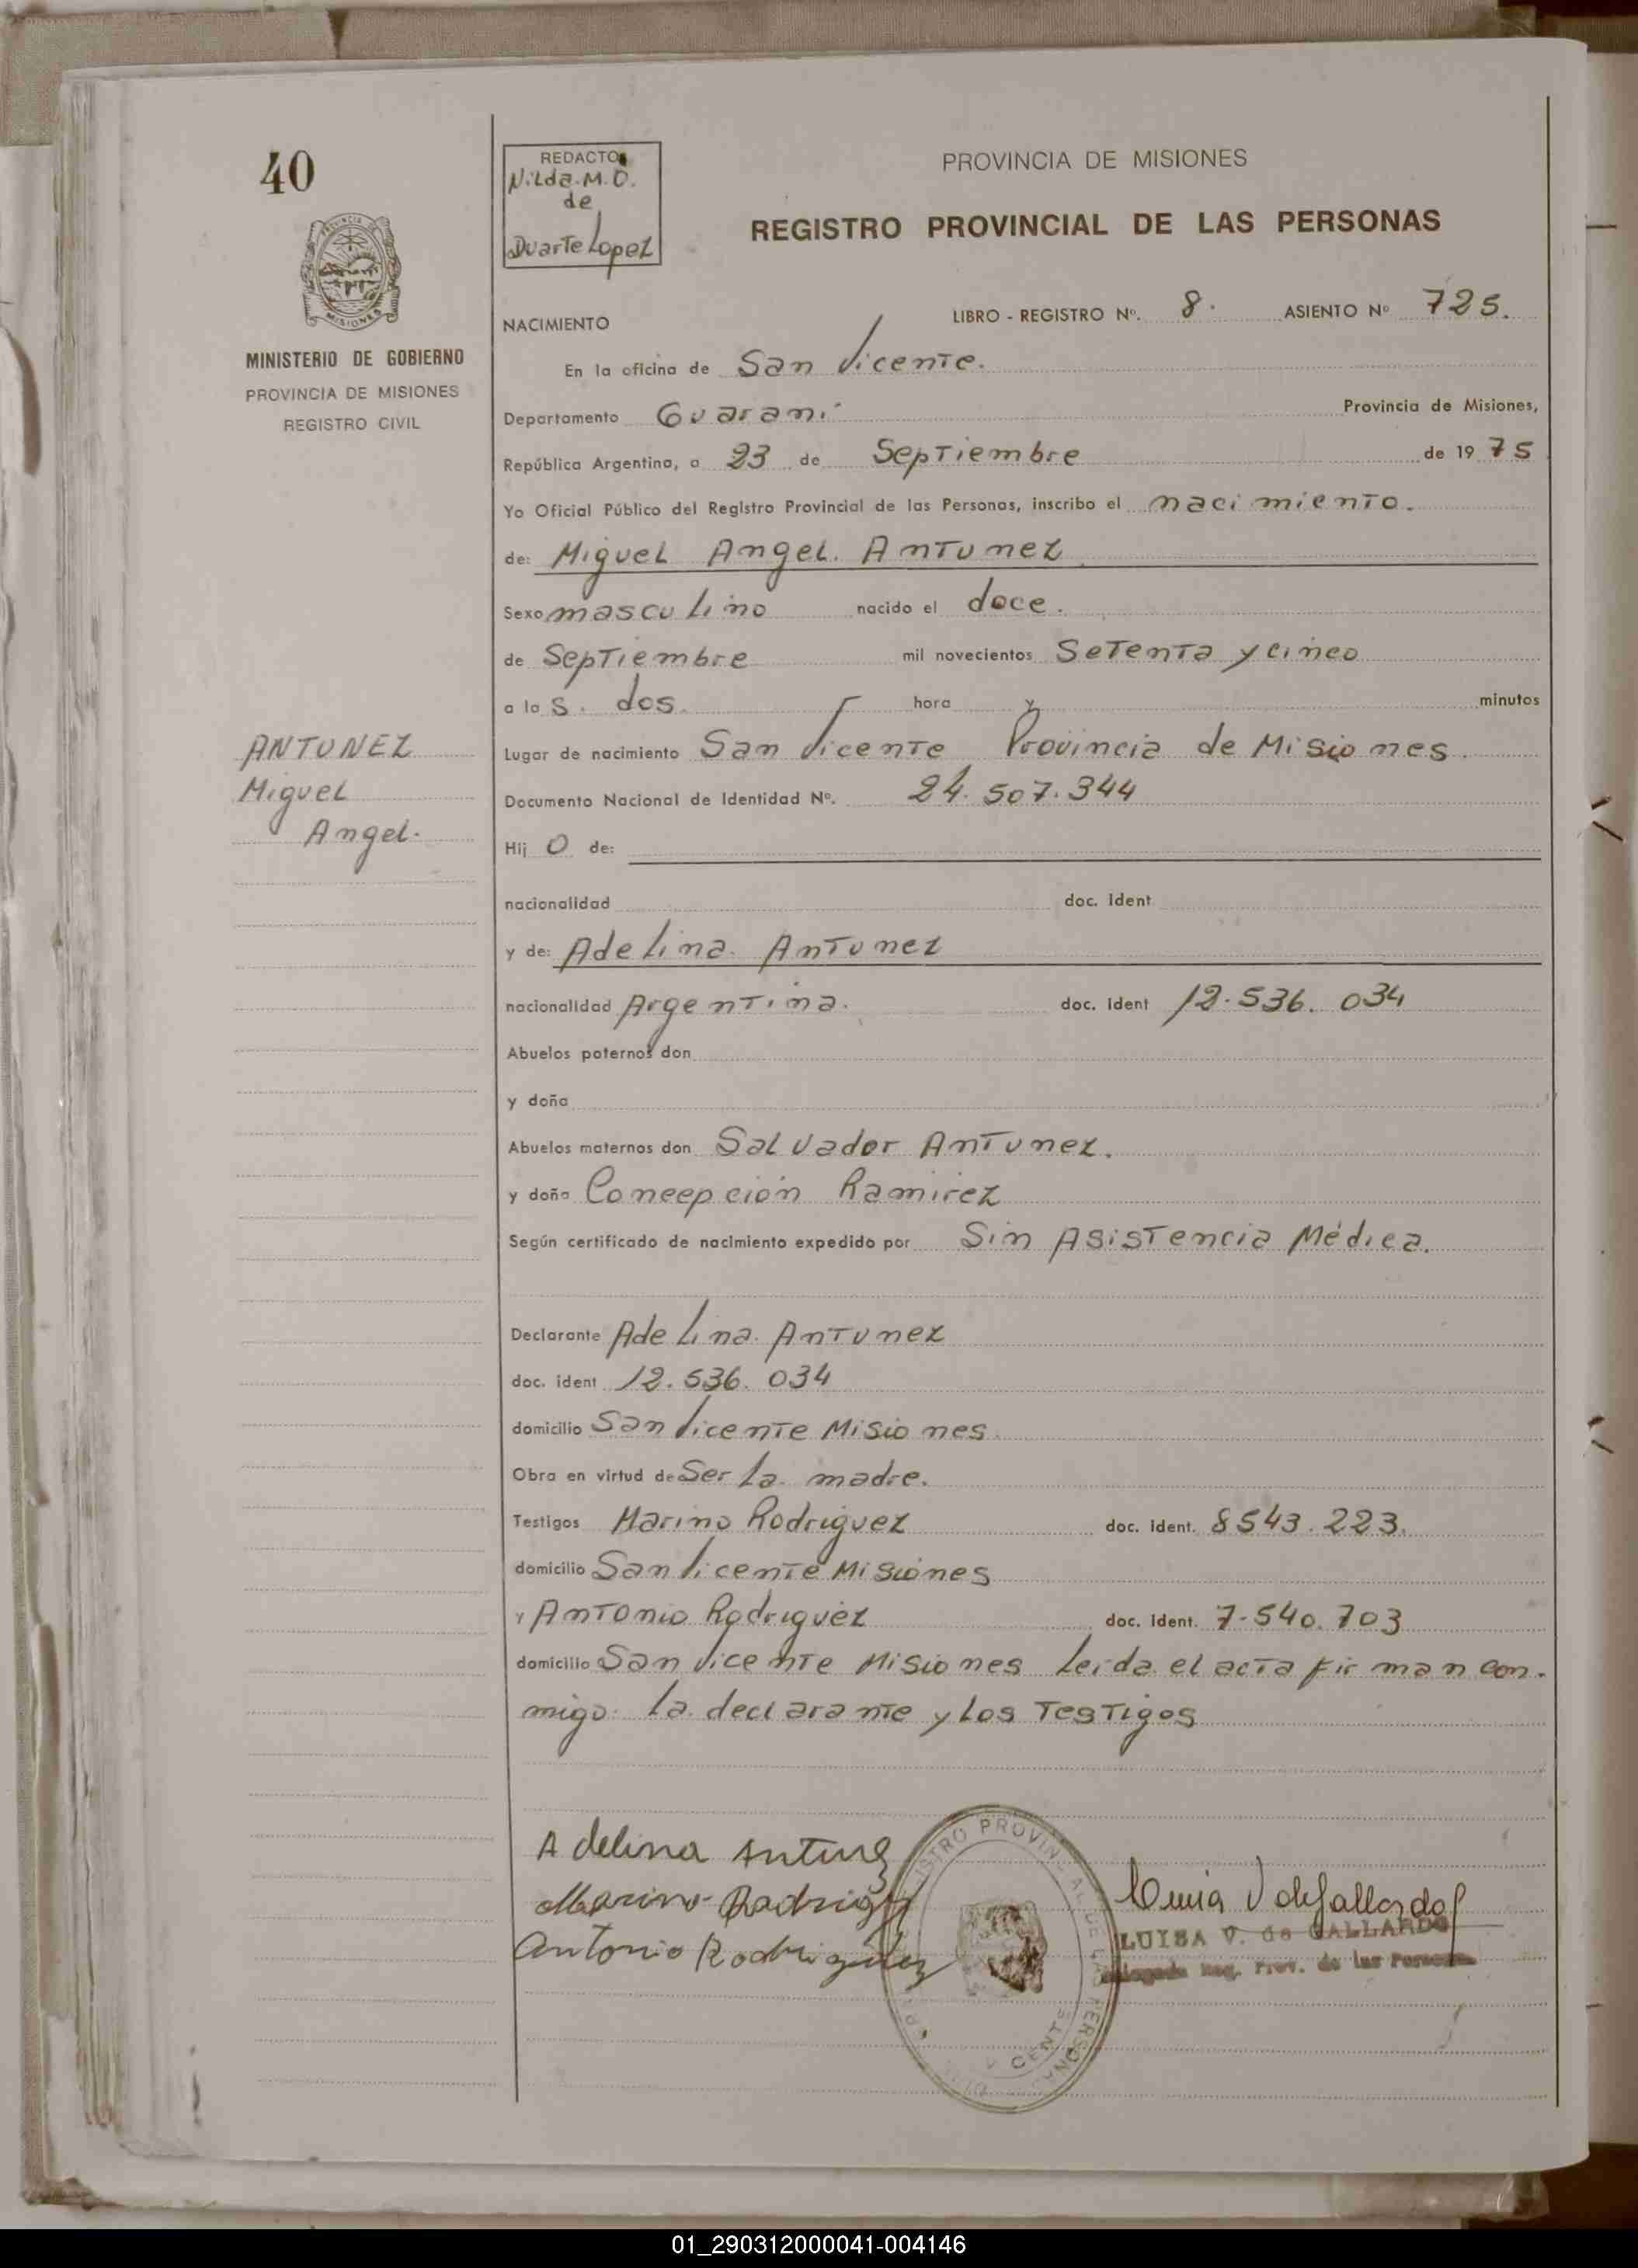 40
REDACTO
Nilda. M. O.
de
Duarte Lopez
PROVINCIA DE MISIONES
REGISTRO PROVINCIAL DE LAS PERSONAS
MISIONES
MINISTERIO DE GOBIERNO
PROVINCIA DE MISIONES
REGISTRO CIVIL
NACIMIENTO
LIBRO - REGISTRO Nº. 8. ASIENTO Nº 725.
En la oficina de San Vicente.
Departamento Guaraní Provincia de Misiones,
República Argentina, a 23 de Septiembre de 1975
Yo Oficial Público del Registro Provincial de las Personas, inscribo el nacimiento.
de: Miguel Angel. Antunez
Sexo masculino nacido el doce.
de Septiembre mil novecientos Setenta y cinco
a las. dos. hora y minutos
ANTUNEZ
Miguel
Angel.
Lugar de nacimiento San Vicente Provincia de Misiones.
Documento Nacional de Identidad Nº. 24.507.344
Hij O de:
nacionalidad doc. ident
y de: Adelina. Antunez
nacionalidad Argentina. doc. ident 12.536.034
Abuelos paternos don
y doña
Abuelos maternos don Salvador Antunez.
y doña Concepción Ramirez
Según certificado de nacimiento expedido por Sin Asistencia Médica.
Declarante Adelina. Antunez
doc. ident 12.536.034
domicilio San Vicente Misiones.
Obra en virtud de Ser la. madre.
Testigos Marino Rodriguez doc. ident. 8543.223.
domicilio San Vicente Misiones
y Antonio Rodriguez doc. ident. 7.540.703
domicilio San Vicente Misiones leida el acta firman con-
migo. la declarante y los Testigos
Adelina
Marino
Antonio Rodriguez
PERSONAS
V. de Gallardo
LUISA V. de GALLARDO
Reg. Prov. de las Personas
01_290312000041-004146